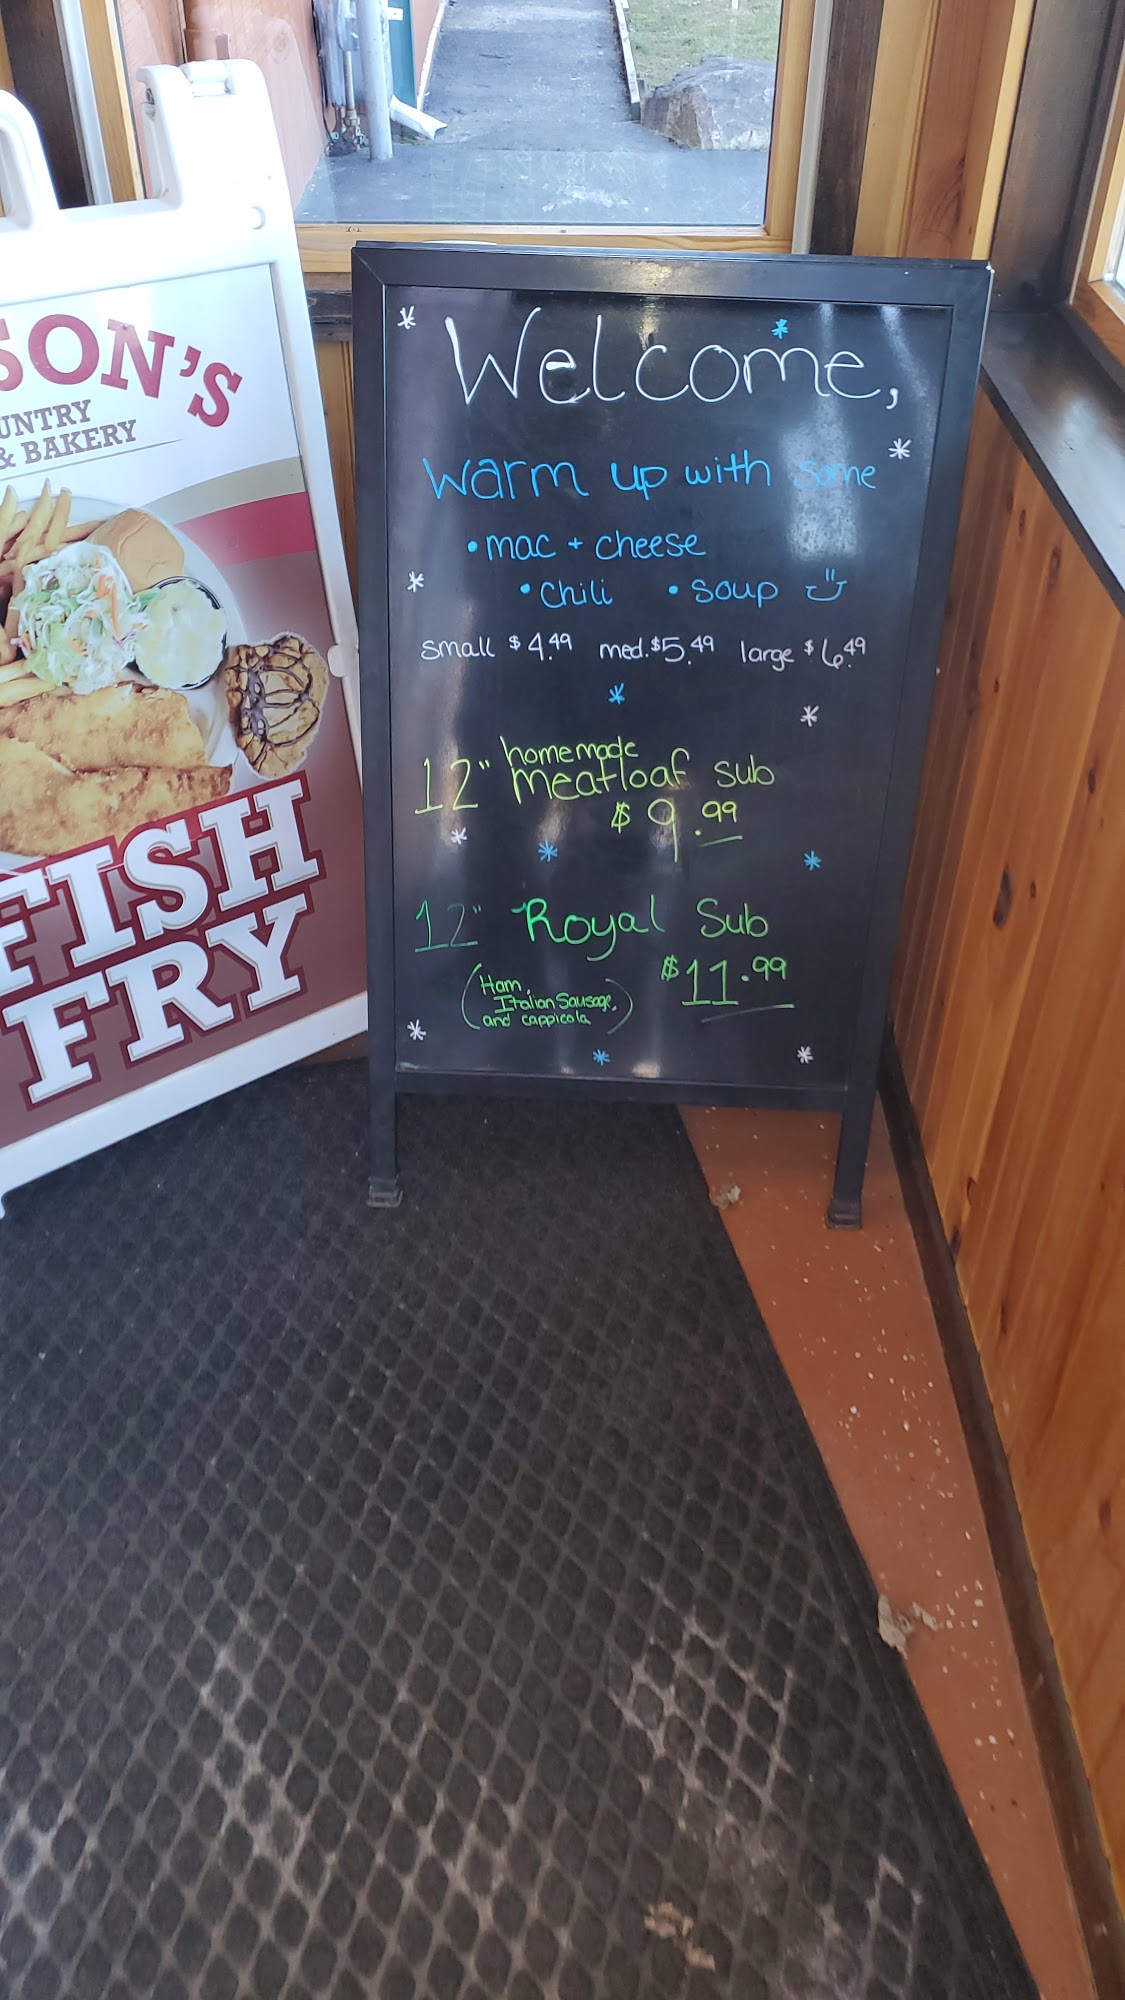 SON'S
UNTRY
& BAKERY
FISH
FRY
Welcome,
Warm up with some
• mac + cheese
• chili • soup
small $4.49 med. $5.49 large $6.49
12" homemade meatloaf sub
$9.99
12" Royal Sub
$11.99
(Ham,
Italian Sausage,
and cappicola)